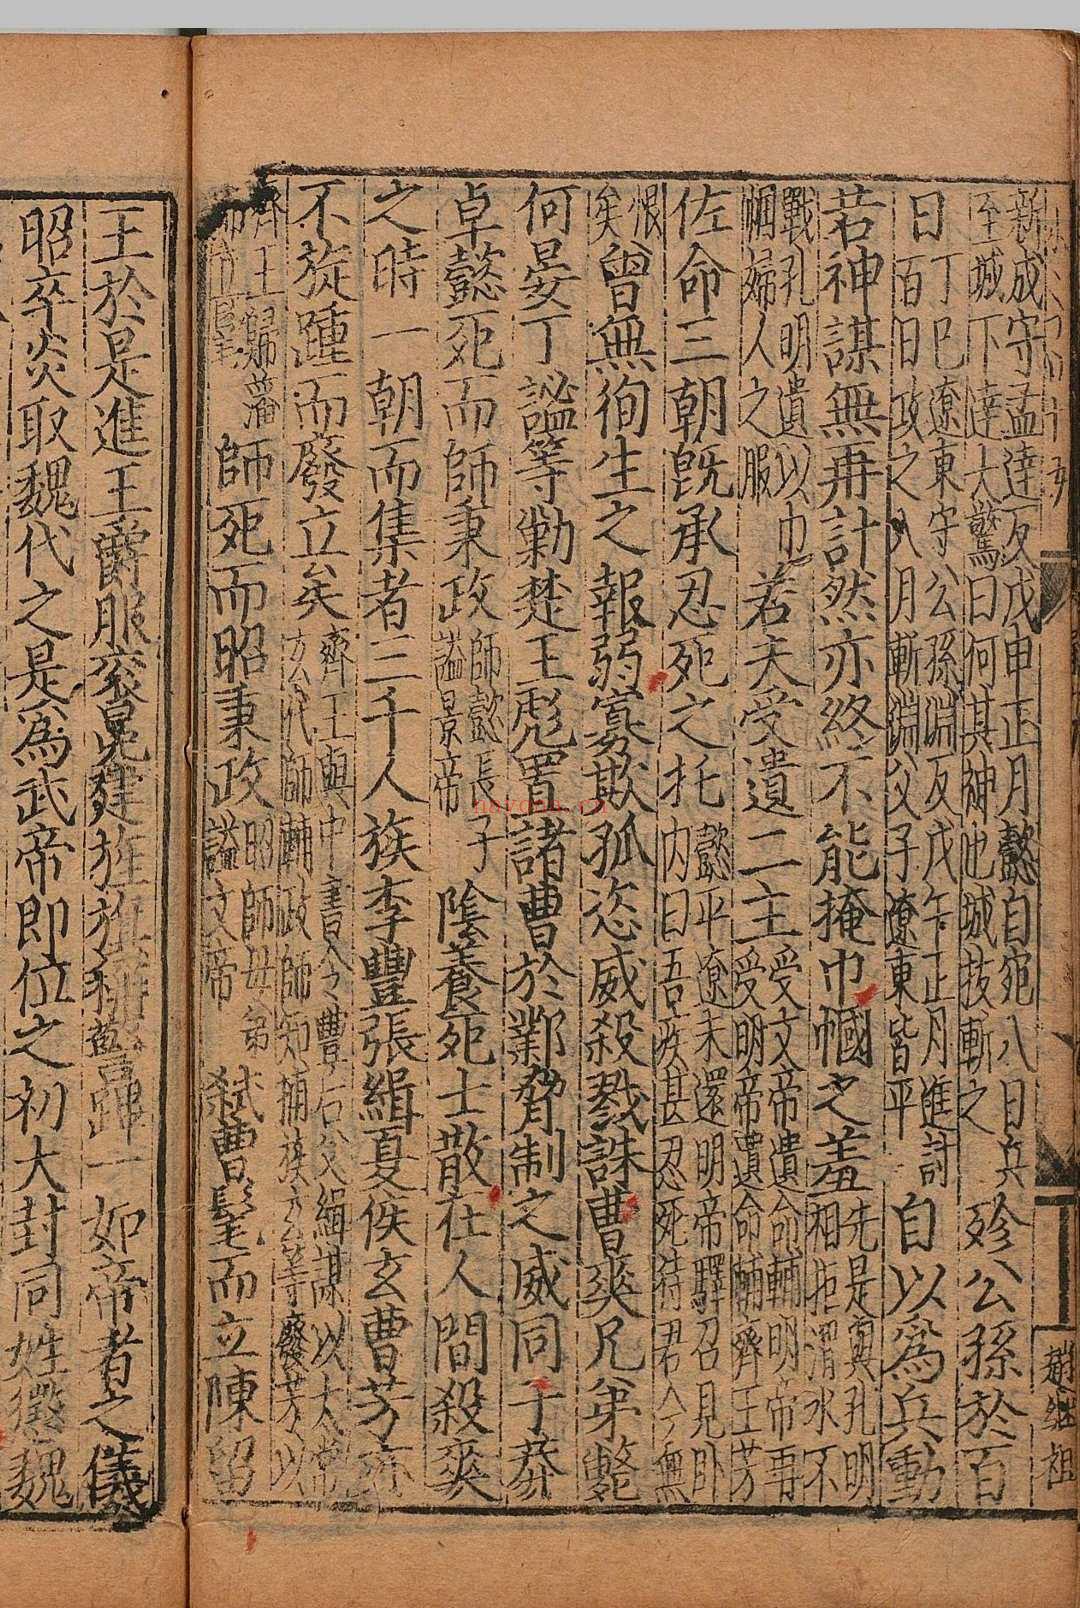 新成守孟達反戊申正月懿自宛八日兵
至城下達大驚曰何其神也城拔斬之
殄公孫於百
日
丁巳遼東守公孫淵反戊午正月進討
百日攻之八月斬淵父子遼東皆平
自以爲兵動
若神謀無再計然亦終不能掩巾幗之羞
先是與孔明
相拒渭水不
戰孔明遺以巾
幗婦人之服
若夫受遺二主
受文帝遺命輔明帝再
受明帝遺命輔齊王芳
佐命三朝旣承忍死之托
懿平遼未還明帝驛召見卧
内曰吾疾甚忍死待君今無
恨
矣
曾無徇生之報弱寡欺孤恣威殺戮誅曹爽兄弟斃
何晏丁謐等勦楚王彪置諸曹於鄴脅制之威同于莽
卓懿死而師秉政
師懿長子
謚景帝
陰養死士散在人間殺爽
之時一朝而集者三千人族李豐張緝夏侯玄曹芳亦
不旋踵而廢立矣
齊王與中書令豐后父緝謀以太常
玄代師輔政師知捕族玄等廢芳以
齊王歸藩
師死而昭秉政
昭師母弟
謚文帝
弑曹髦而立陳留
王於是進王爵服衮冕建旌旂稱警蹕一如帝者之儀
昭卒炎取魏代之是爲武帝即位之初大封同姓懲魏
趙继祖